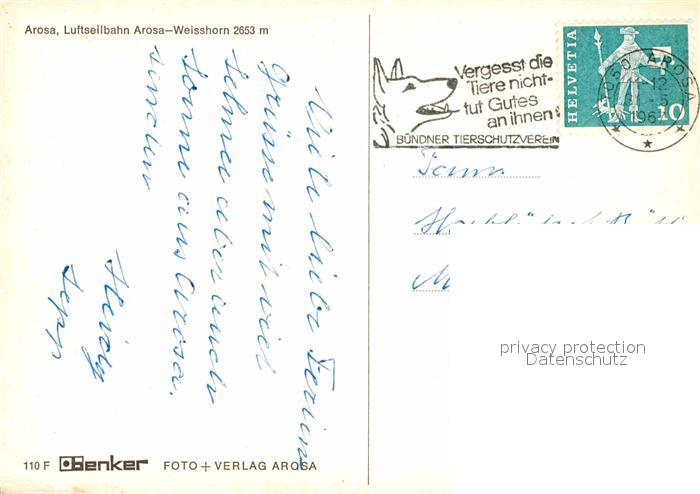 Arosa, Luftseilbahn Arosa—Weisshorn 2653 m
Viele liebe Ferien
Grüsse mit viel
Schnee aber auch
Sonne aus Arosa.
senden
Heidy
Sepp
110 F Benker FOTO + VERLAG AROSA
Vergesst die
Tiere nicht-
tut Gutes
an ihnen
BÜNDNER TIERSCHUTZVEREIN
HELVETIA
10
7050 AROSA
Fam.
privacy protection
Datenschutz